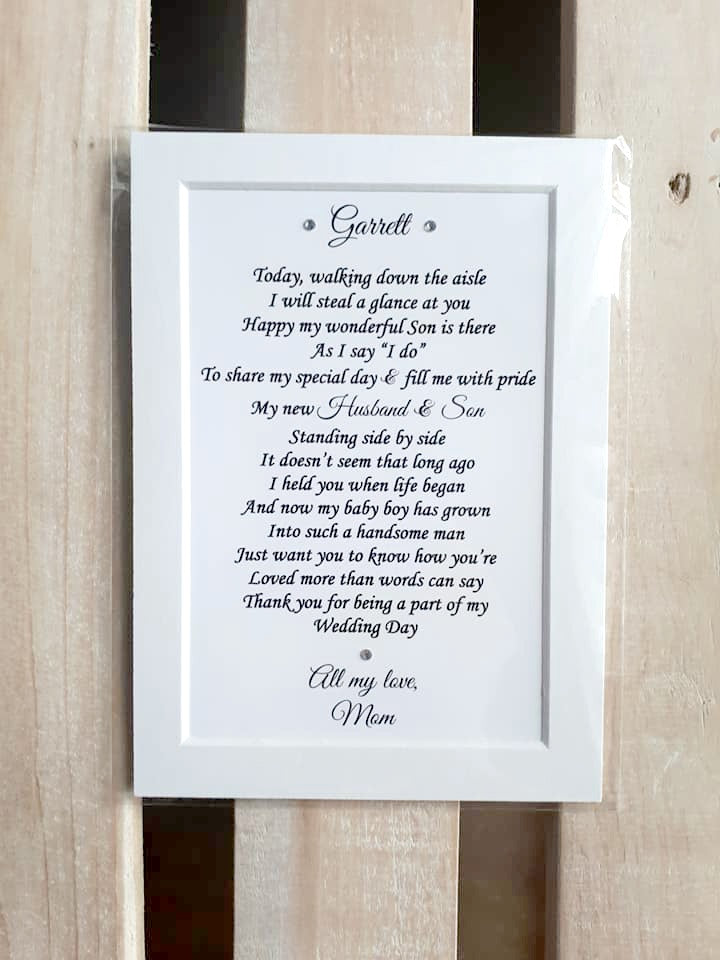 Garrett
Today, walking down the aisle
I will steal a glance at you
Happy my wonderful Son is there
As I say “I do”
To share my special day & fill me with pride
My new Husband & Son
Standing side by side
It doesn’t seem that long ago
I held you when life began
And now my baby boy has grown
Into such a handsome man
Just want you to know how you’re
Loved more than words can say
Thank you for being a part of my
Wedding Day
All my love,
Mom